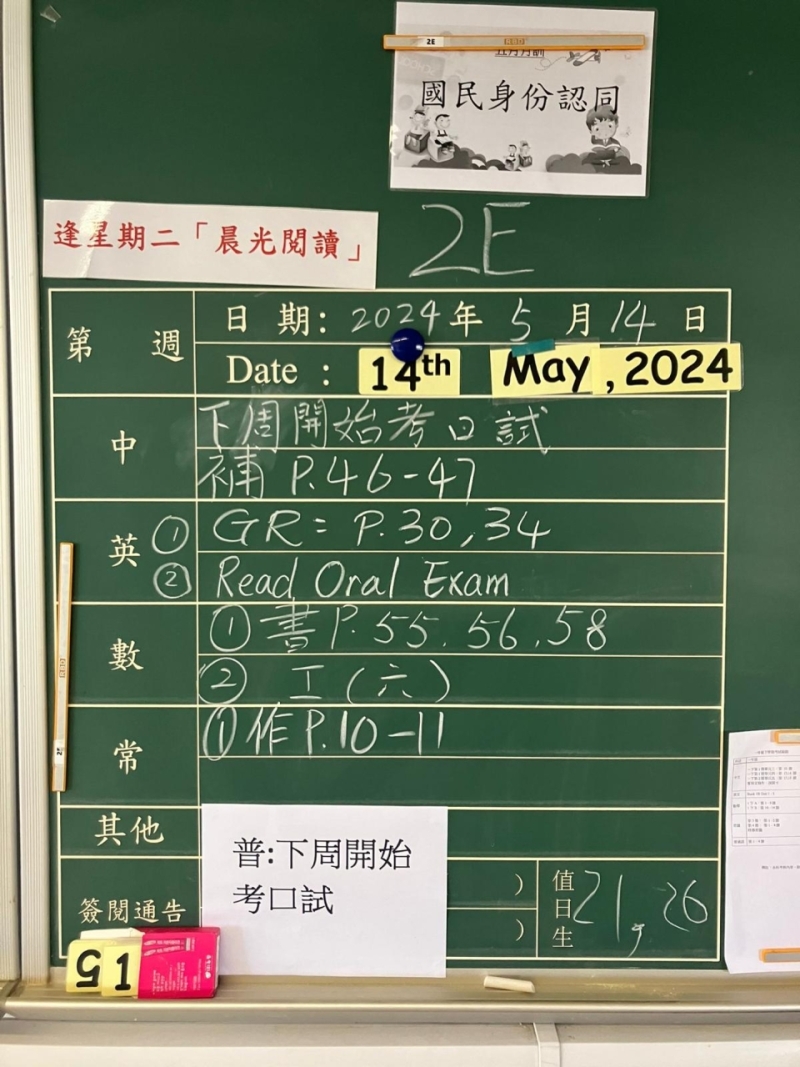 2E
五月月訓
國民身份認同
逢星期二「晨光閱讀」
2E
第 週
日 期: 2024 年 5 月 14 日
Date : 14th May, 2024
中
下周開始考口試
補 P.46-47
英
① GR = P.30, 34
② Read Oral Exam
數
① 書 P. 55. 56. 58
② 工 (六)
常
① 作 P.10-11
其他
普:下周開始
考口試
簽閱通告
)
)
值日生
21, 26
15
2E